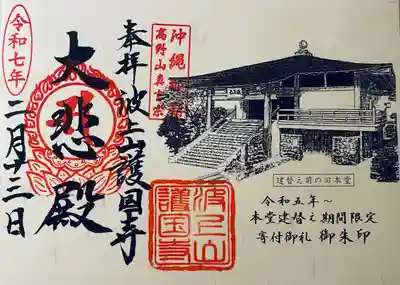 奉拝 波上山護国寺
沖縄
高野山真言宗
大悲殿
令和七年
二月十三日
波上山
護国寺
建替え前の旧本堂
令和五年〜
本堂建替え期間限定
寄付御礼 御朱印